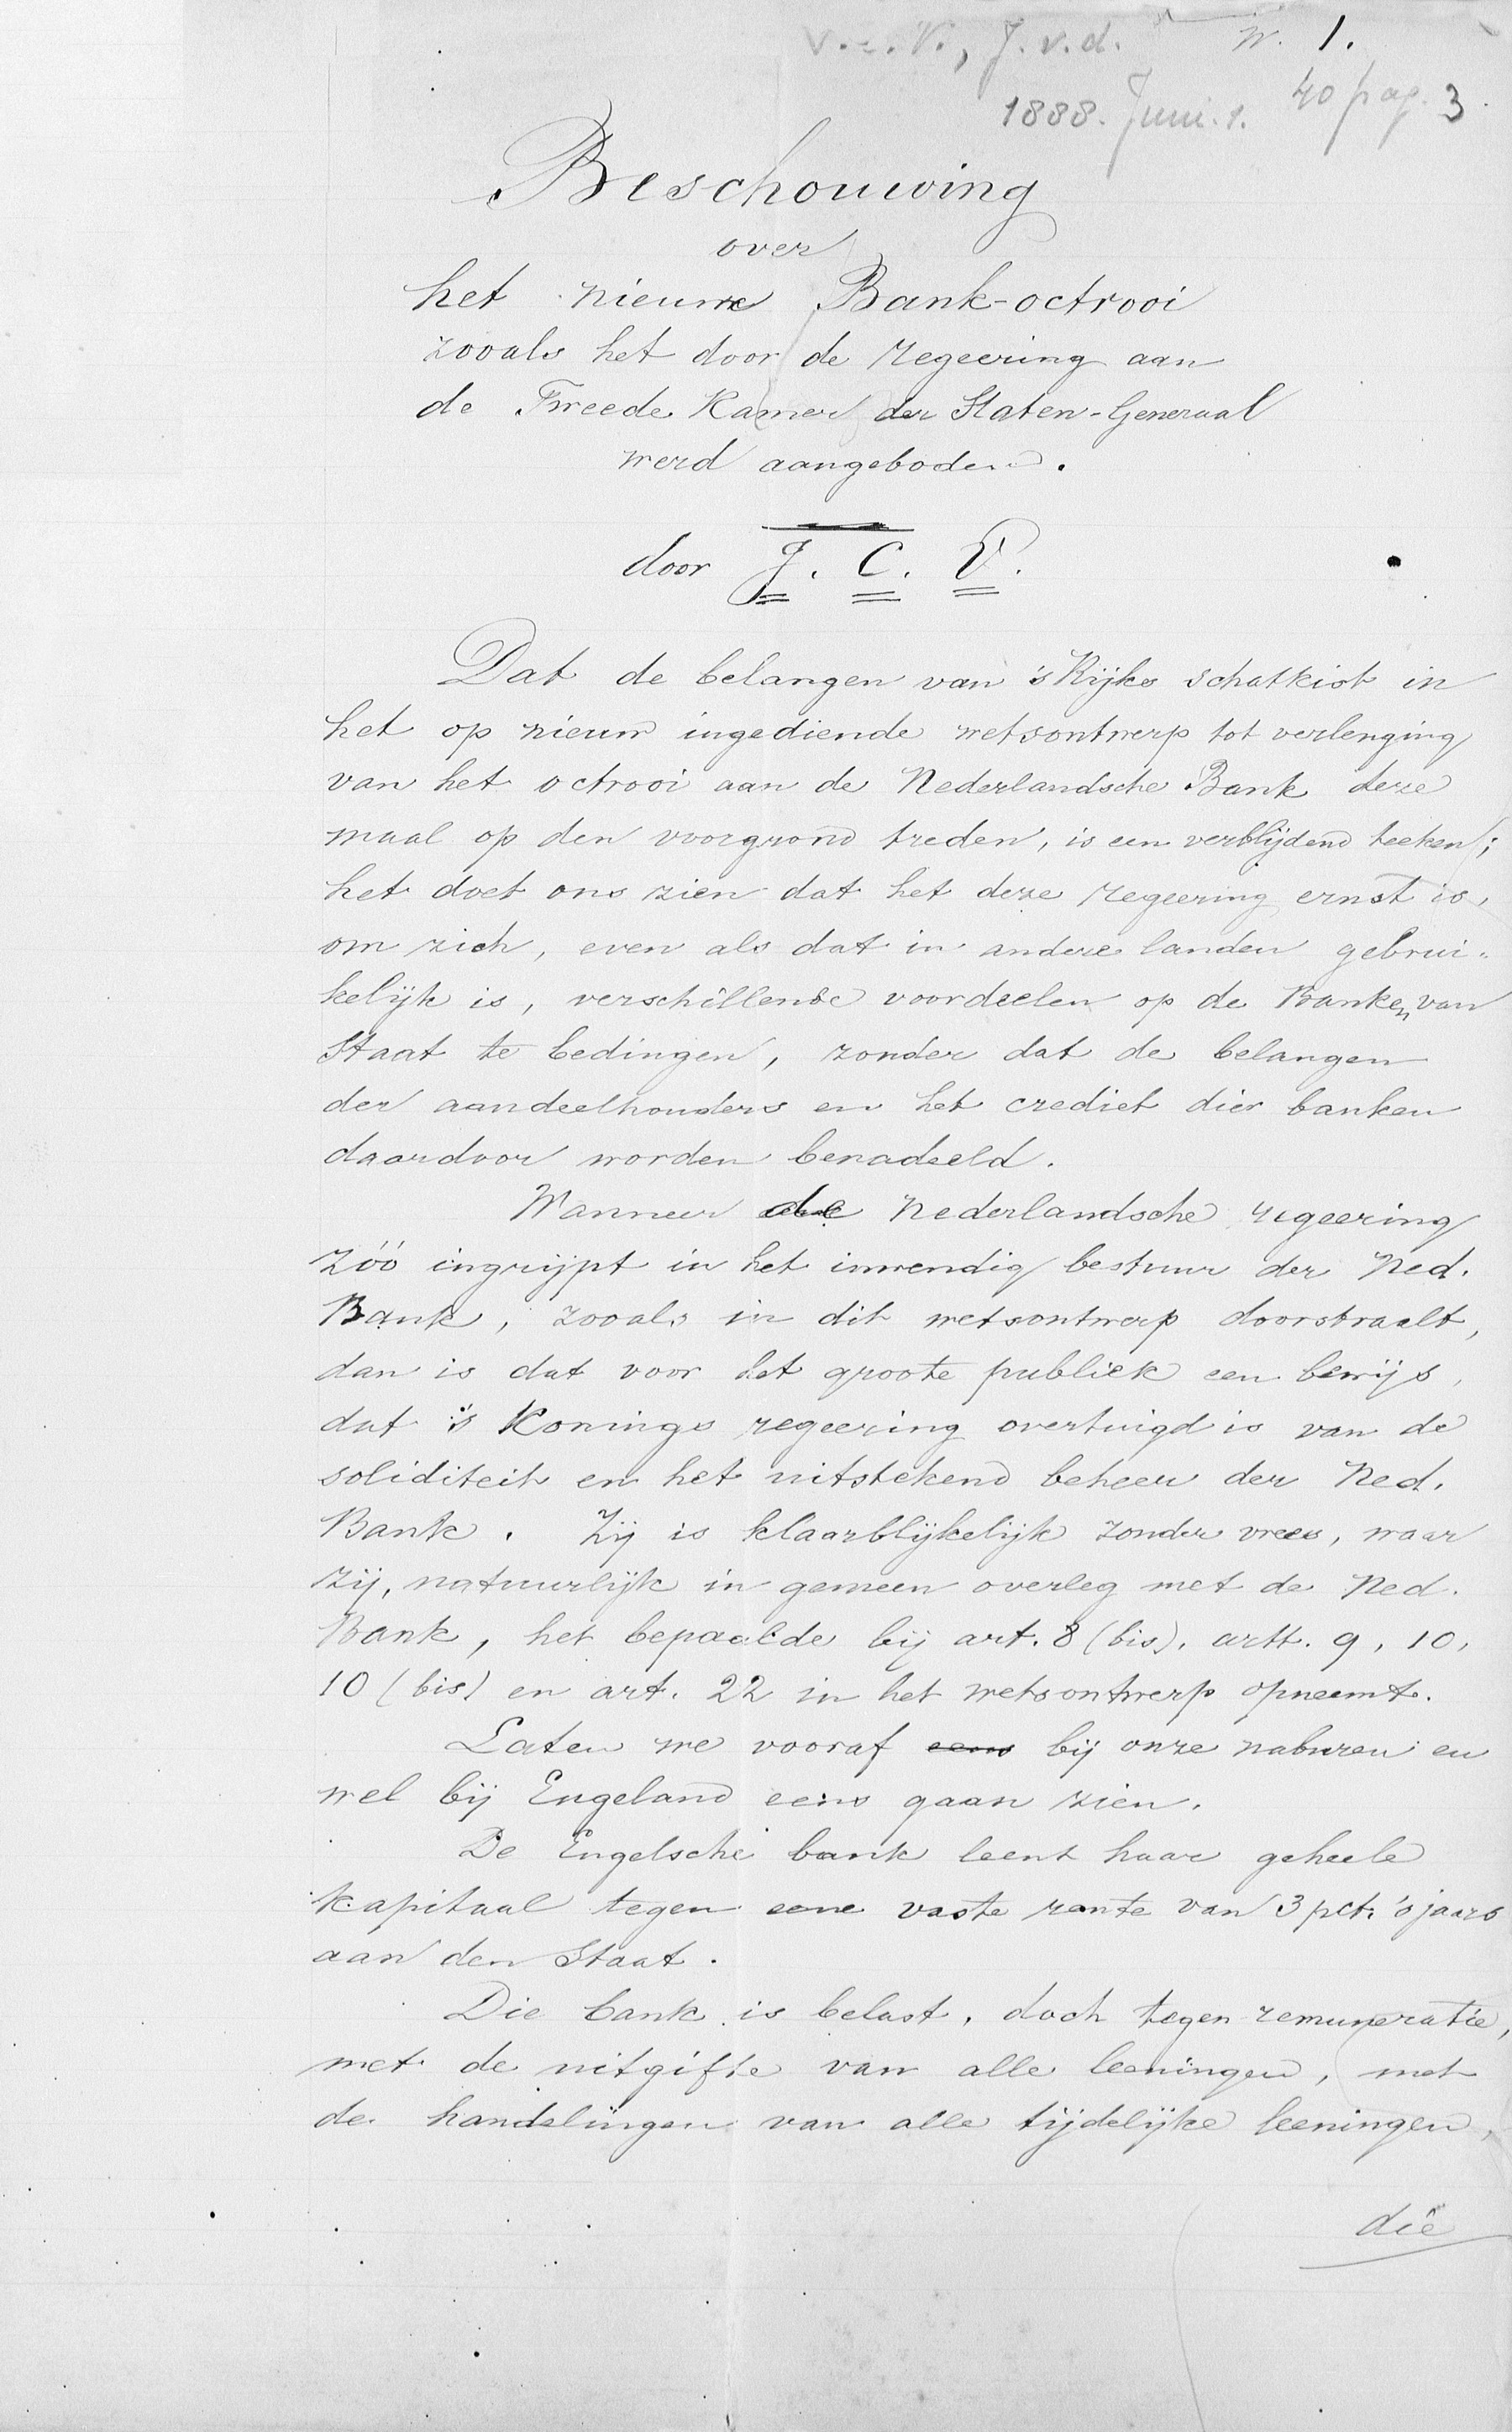 V. v. V., J. v. d. W. 1.
1888. Juni. 1. 40 pag. 3
Beschouwing
over
het nieuwe Bank-octrooi
zooals het door de regeering aan
de Tweede Kamer der Staten-Generaal
werd aangeboden.
door J. C. V.
Dat de belangen van 's Rijks schatkist in
het op nieuw ingediende wetsontwerp tot verlenging
van het octrooi aan de Nederlandsche Bank deze
maal op den voorgrond treden, is een verblijdend teeken;
het doet ons zien dat het deze regeering ernst is,
om zich, even als dat in andere landen gebrui-
kelijk is, verschillende voordeelen op de Banken van
Staat te bedingen, zonder dat de belangen
der aandeelhouders en het crediet dier banken
daardoor worden benadeeld.
Wanneer de Nederlandsche regeering
zóó ingrijpt in het inwendig bestuur der Ned.
Bank, zooals in dit wetsontwerp doorstraalt,
dan is dat voor het groote publiek een bewijs,
dat 's Konings regeering overtuigd is van de
soliditeit en het uitstekend beheer der Ned.
Bank. Zij is klaarblijkelijk zonder vrees, waar
zij, natuurlijk in gemeen overleg met de Ned.
Bank, het bepaalde bij art. 8 (bis), artt. 9, 10,
10 (bis) en art. 22 in het wetsontwerp opneemt.
Laten we vooraf eens bij onze naburen en
wel bij Engeland eens gaan zien.
De Engelsche bank leent haar geheele
kapitaal tegen eene vaste rente van 3 pct. 's jaars
aan den Staat.
Die bank is belast, doch tegen remuneratie,
met de uitgifte van alle leeningen, met
de handelingen van alle tijdelijke leeningen,
die